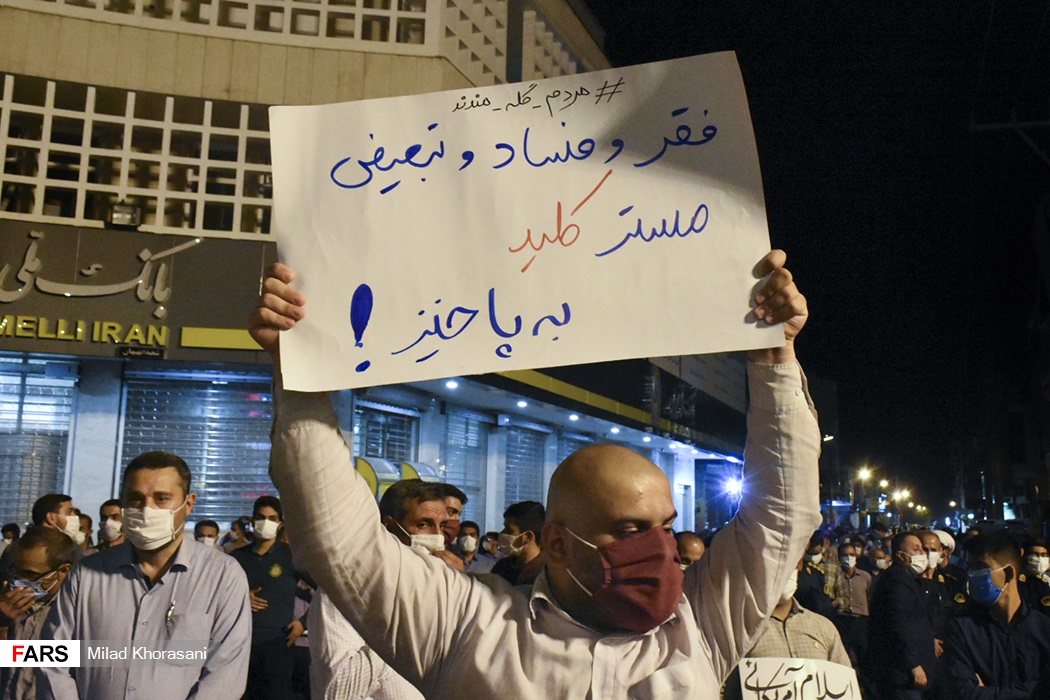 #مردم_گله_مندند
فقر و فساد و تبعیض
مستر کلید
به پا خیز !
بانک ملی
MELLI IRAN
FARS Milad Khorasani